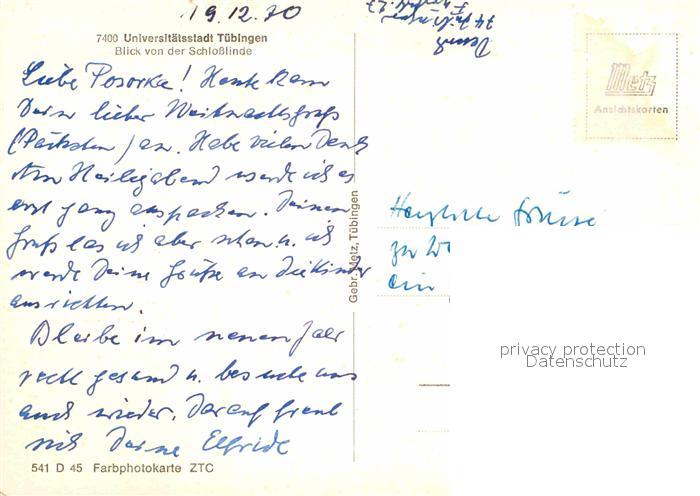 19.12.70
7400 Universitätsstadt Tübingen
Blick von der Schloßlinde
Liebe Posorka! Heute kam
Dein lieber Weihnachtsgruß
(Päckchen) an. Habe vielen Dank
Am Heiligabend werde ich es
erst ganz auspacken. Deinen
Gruß las ich aber schon u. ich
werde Deine Grüße an die Kinder
ausrichten.
Bleibe im neuen Jahr
recht gesund u. besuche uns
auch wieder. Darauf freut
sich Deine Elfride
541 D 45 Farbphotokarte ZTC
Gebr. Metz, Tübingen
74
Metz
Ansichtskarten
Herzliche Grüsse
zu
ein
privacy protection
Datenschutz